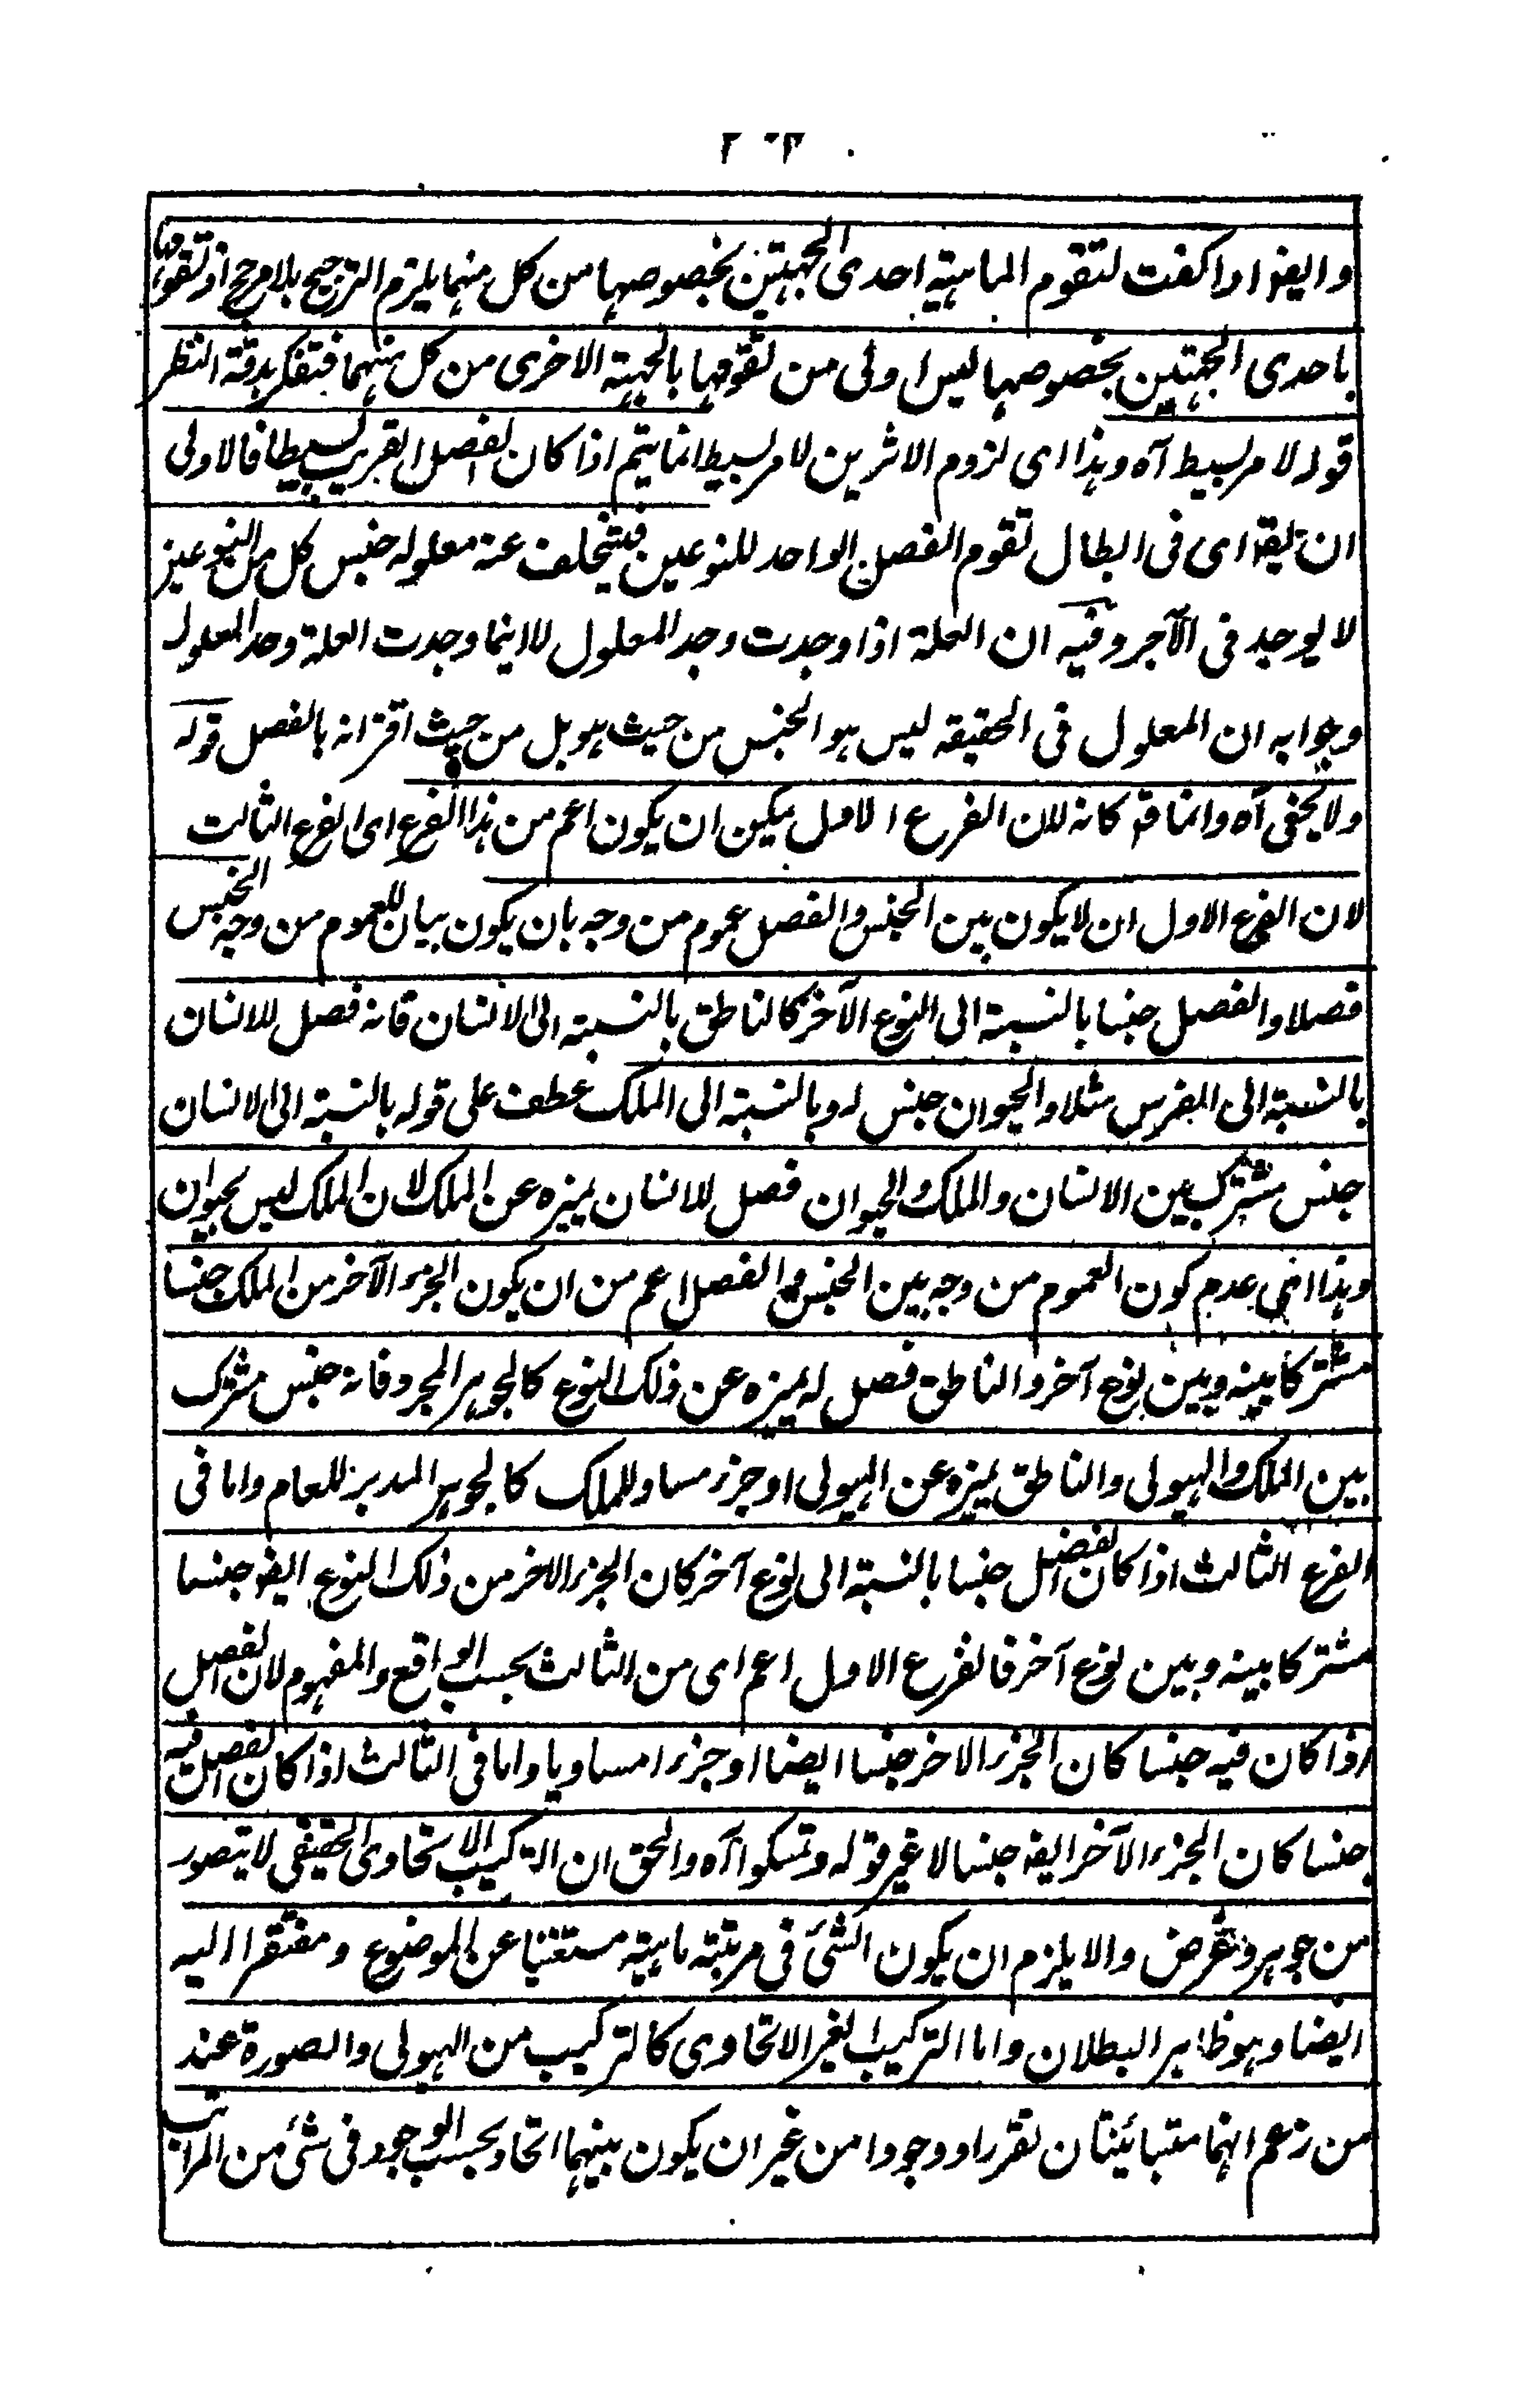 وايضا اذا كفت لتقوم الماهية احدى الجهتين بخصوصها من كل منهما يلزم الترجيح بلا مرجح اذ تقومها
باحدى الجهتين بخصوصها ليس اولى من تقومها بالجهة الاخرى من كل منهما فتفكر بدقة النظر
قوله لامر بسيط آه وهذا اى لزوم الاثرين لامر بسيط انما يتم اذا كان الفصل القريب بسيطا فالاولى
ان يقه اى فى ابطال تقوم الفصل الواحد للنوعين فيتخلف عنه معلوله جنس كل من النوعين
لا يوجد فى الآخر وفيه ان العلة اذا وجدت وجد المعلول لا اينما وجدت العلة وجد المعلول
وجوابه ان المعلول فى الحقيقة ليس هو الجنس من حيث هو بل من حيث اقترانه بالفصل قوله
ولا يخفى آه وانما قه كانه لان الفرع الاول يمكن ان يكون اعم من هذا الفرع اى الفرع الثالث
لان الفرع الاول ان لا يكون بين الجنس والفصل عموم من وجه بان يكون بيان للعموم من وجه الجنس
فصلا والفصل جنسا بالنسبة الى النوع الآخر كالناطق بالنسبة الى الانسان فانه فصل للانسان
بالنسبة الى الفرس مثلا والحيوان جنس له وبالنسبة الى الملك عطف على قوله بالنسبة الى الانسان
جنس مشترك بين الانسان والملك والحيوان فصل للانسان يميزه عن الملك لان الملك ليس بحيوان
وهذا اى عدم كون العموم من وجه بين الجنس والفصل اعم من ان يكون الجزء الآخر من الملك جنسا
مشتركا بينه وبين نوع آخر والناطق فصل له يميزه عن ذلك النوع كالجوهر المجرد فانه جنس مشترك
بين الملك والهيولى والناطق يميزه عن الهيولى او جزء مساو للملك كالجوهر المدبر للعام واما فى
الفرع الثالث اذا كان الفصل جنسا بالنسبة الى نوع آخر كان الجزء الاخر من ذلك النوع ايضا جنسا
مشتركا بينه وبين نوع آخر فالفرع الاول اعم اى من الثالث بحسب الواقع والمفهوم لان الفصل
اذا كان فيه جنسا كان الجزء الاخر جنسا ايضا او جزءا مساويا واما فى الثالث اذا كان الفصل فيه
جنسا كان الجزء الآخر ايضا جنسا لا غير قوله وتمسكوا آه والحق ان التركيب الاتحادى الحقيقى لا يتصور
من جوهر وعرض والا يلزم ان يكون الشئ فى مرتبة ماهيته مستغنيا عن الموضوع ومفتقرا اليه
ايضا وهو ظاهر البطلان واما التركيب الغير الاتحادى كالتركيب من الهيولى والصورة عند
من زعم انهما متبائنان تقررا ووجودا من غير ان يكون بينهما اتحاد بحسب الوجود فى شئ من المراتب